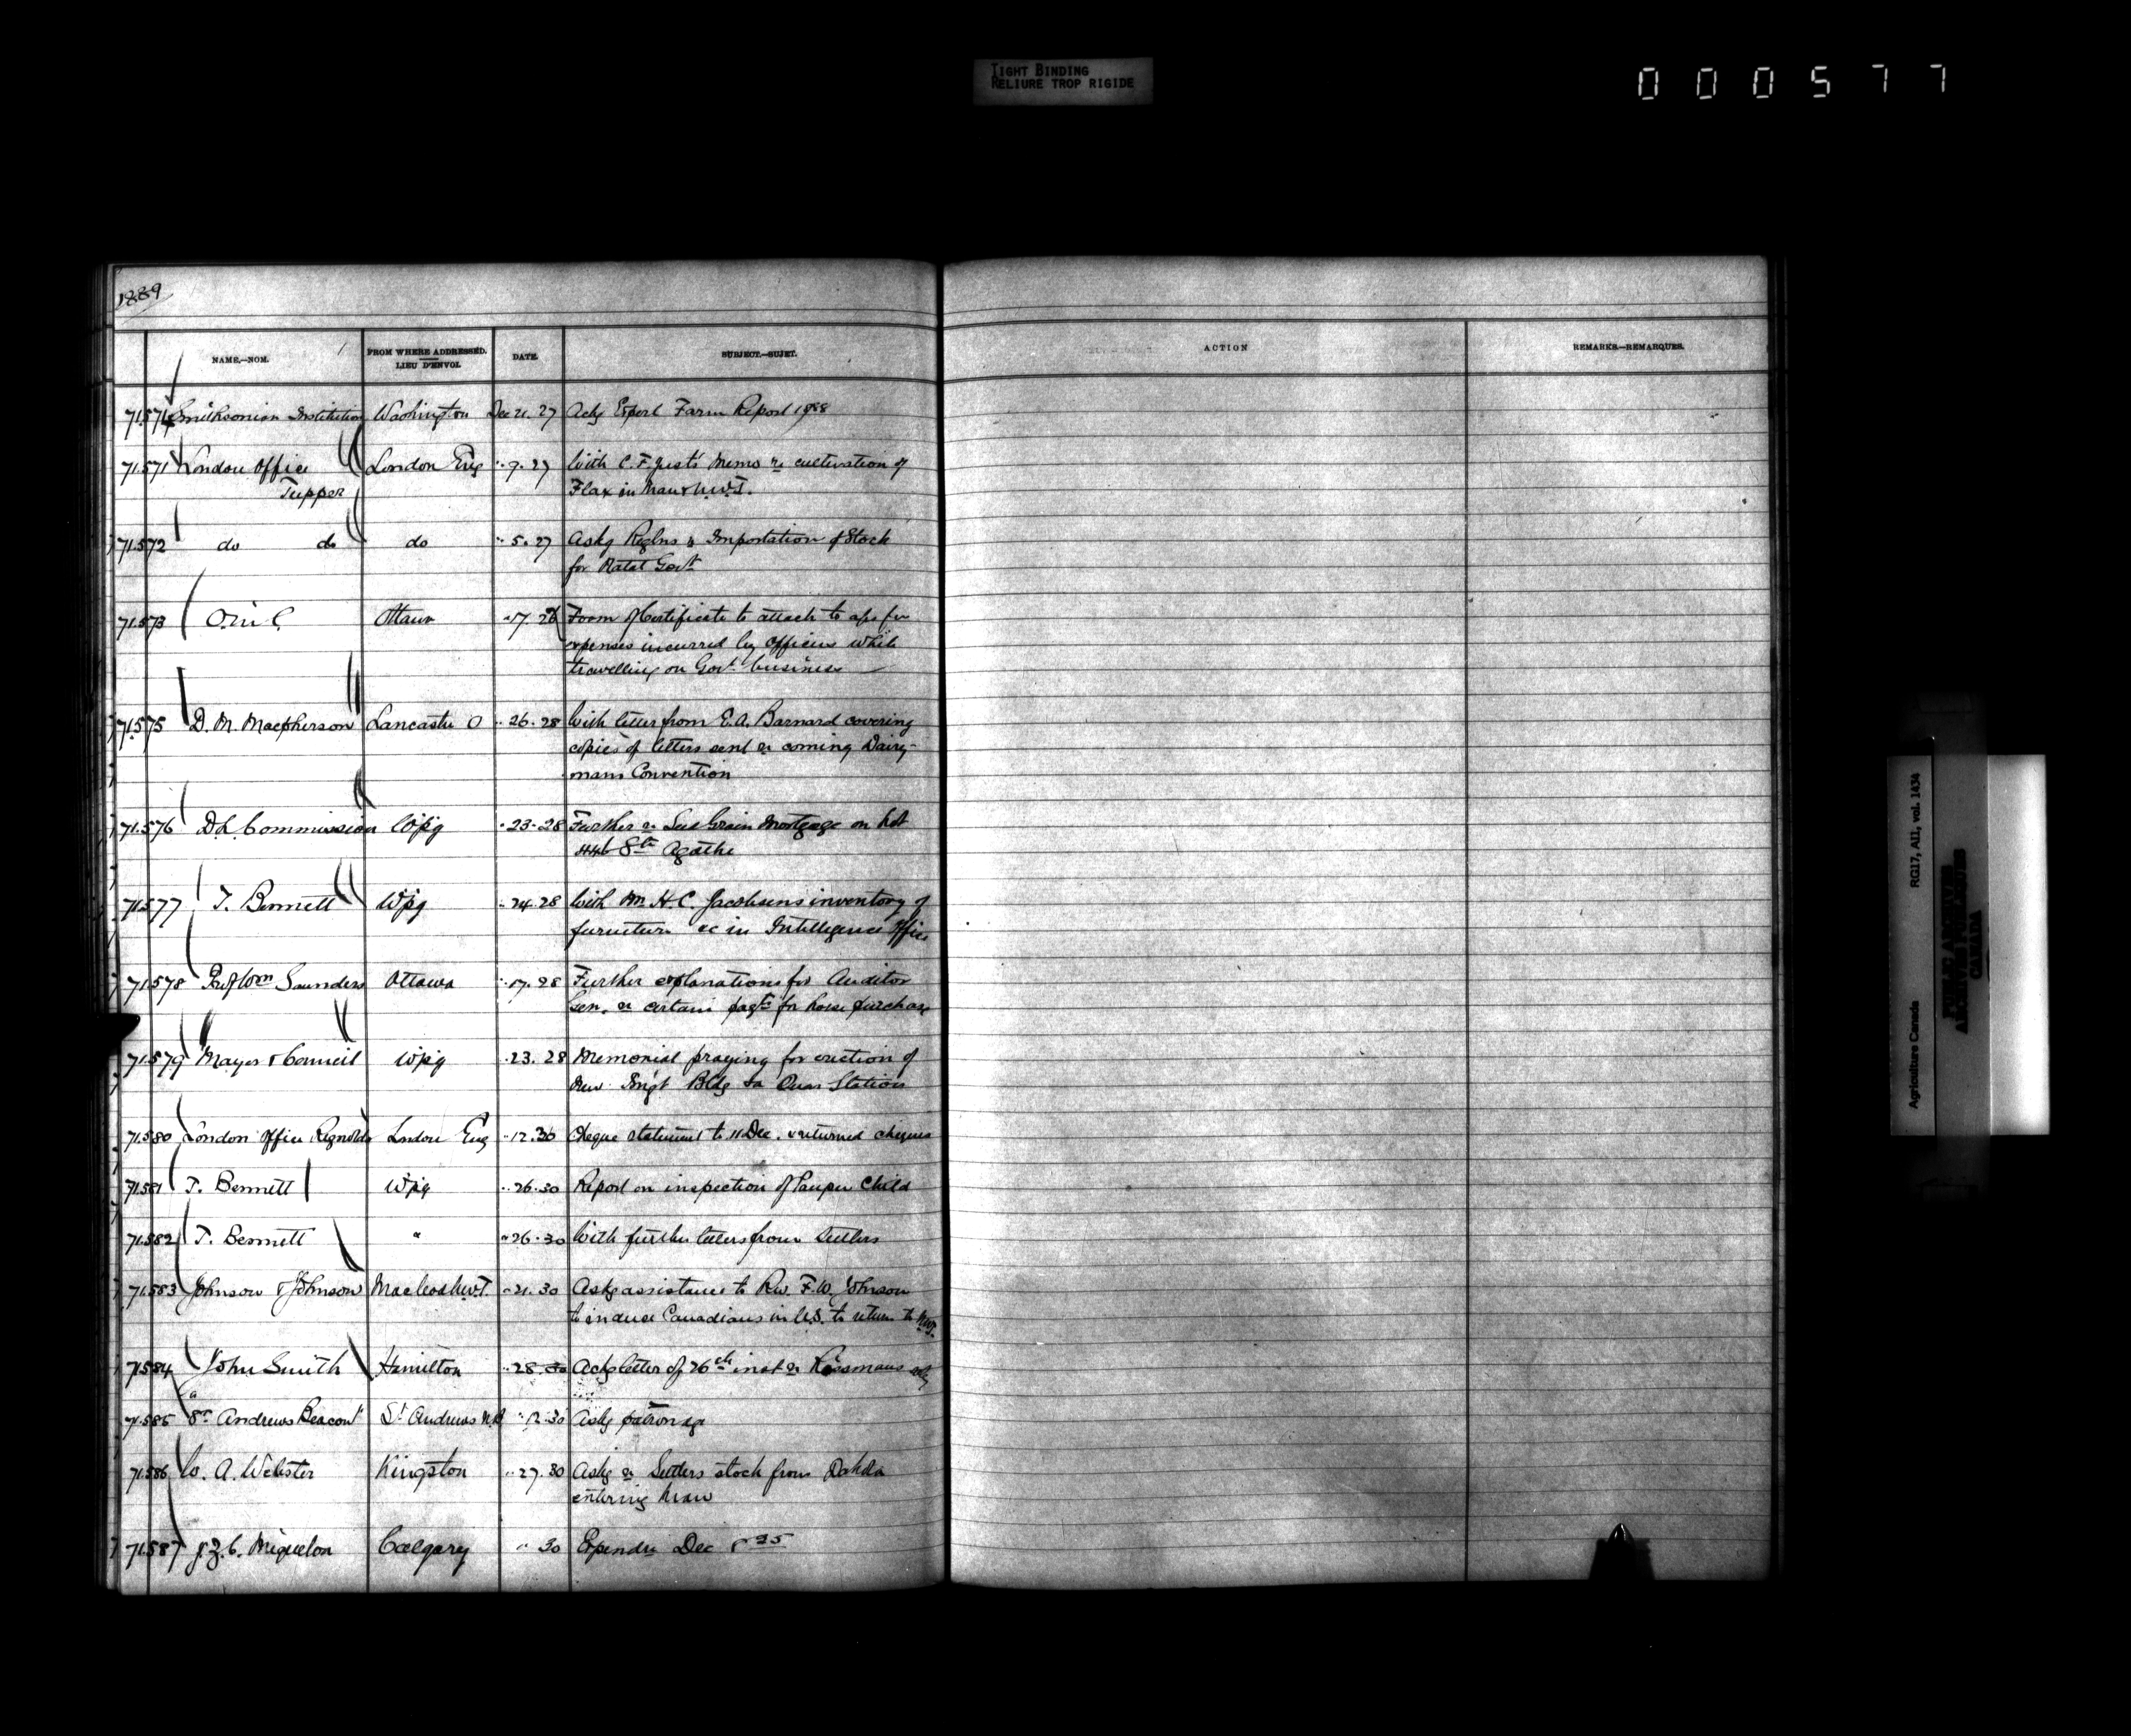 TIGHT BINDING
RELIURE TROP RIGIDE
000577
1889
NAME.—NOM.
FROM WHERE ADDRESSED.
LIEU D'ENVOI.
DATE.
SUBJECT.—SUJET.
ACTION
REMARKS.—REMARQUES.
71.574 Smithsonian Institution Washington Dec 21. 27 Ackg Experl Farm Report 1888
71.571 London Office London Eng " 9. 27 With C. F. Just's Memo re cultivation of
Tupper Flax in Man & N.W.T.
71.572 do do do " 5. 27 Askg Reglns re Importation of Stock
for Natal Govt
71.573 O. in C. Ottawa " 17. 28 Form of Certificate to attach to aps for
expenses incurred by Officers while
travelling on Govt business
71.575 D. M. Macpherson Lancaster O " 26. 28 With letter from E. A. Barnard covering
copies of letters sent re coming Dairy-
mans Convention
71.576 D.L. Commission Wpg " 23. 28 Further re Seed Grain Mortgage on Lot
446 Ste Agathe
71.577 T. Bennett Wpg " 24. 28 With Mr H. C. Jacobsens inventory of
furniture &c in Intelligence Office
71.578 Prof Wm Saunders Ottawa " 17. 28 Further explanations for Auditor
Gen. re certain payts for horse purchase
71.579 Mayor & Council Wpg " 23. 28 Memorial praying for erection of
New Imgt Bldg & Quar Station
71.580 London Office Reynolds London Eng " 12. 30 Cheque statement to 11 Dec. & returned cheques
71.581 T. Bennett Wpg " 26. 30 Report on inspection of Pauper Child
71.582 T. Bennett " " 26. 30 With further letters from Settlers
71.583 Johnson & Johnson Macleod N.W.T. " 21. 30 Askg assistance to Rev. F. W. Johnson
to induce Canadians in U.S. to return to N.W.T.
71.584 John Smith Hamilton " 28. 30 Ackg letter of 26th inst re
71.585 "St Andrews Beacon" St Andrews N.B " 12. 30 Askg patronage
71.586 W. A. Webster Kingston " 27. 30 Askg re Settlers stock from Dakota
entering Man
71.587 J. Z. C. Miquelon Calgary " 30 Expendre Dec
Agriculture Canada RG17, AII, vol. 1434
PUBLIC ARCHIVES
ARCHIVES PUBLIQUES
CANADA